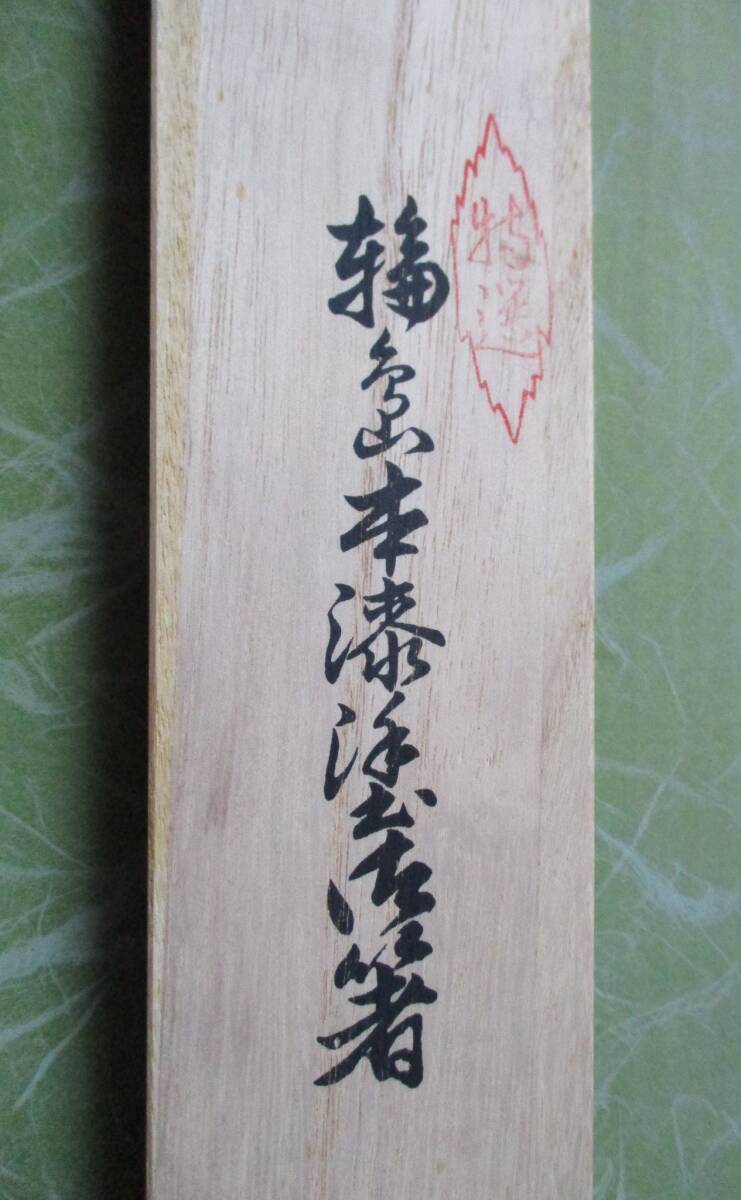 特選
輪島本漆塗御箸